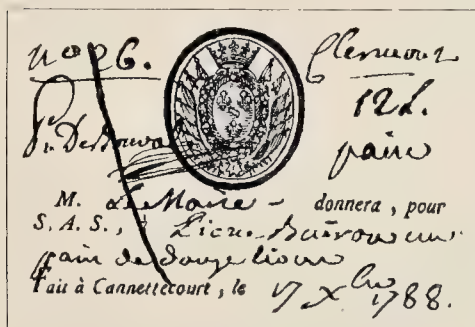 n.º 26. Clermont
12 L.
P. Desrouva pain
M. Le Maire - donnera, pour
S. A. S., à Pierre un
pain de douze livres
Fait à Cannettecourt, le 17 Xbre 1788.